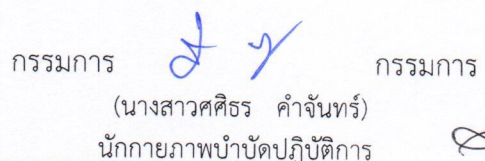 กรรมการ กรรมการ
(นางสาวศศิธร คำจันทร์)
นักกายภาพบำบัดปฏิบัติการ